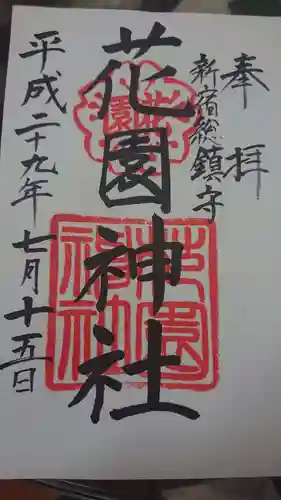 奉拝
新宿総鎮守
花園神社
平成二十九年七月十五日
花園
花園神社